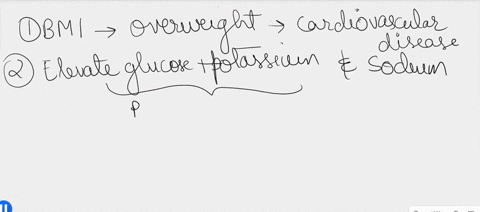 ① BMI → overweight → cardiovascular
disease
② Elevate glucose + potassium & Sodium
P